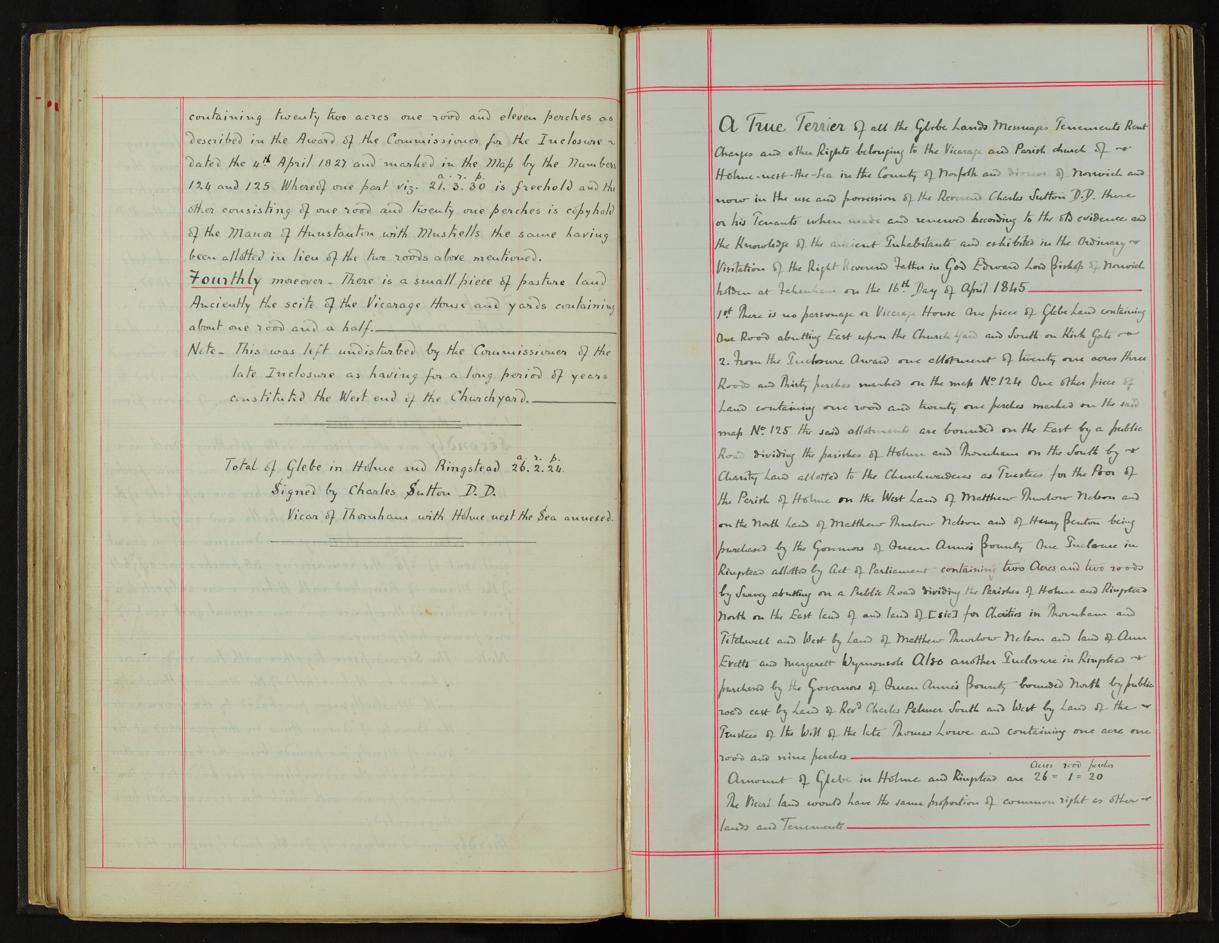 containing twenty two acres one rood and eleven perches as
described in the Award of the Commissioner for the Inclosure -
dated the 4th April 1827 and marked in the Map by the Numbers
a. r. p.
124 and 125 Whereof one part viz. 21. 3. 30 is freehold and the
other consisting of one rood and twenty one perches is copyhold
of the Manor of Hunstanton with Mustrells the same having
been allotted in lieu of the two roods above mentioned.
Fourthly moreover - There is a small piece of pasture land
Anciently the scite of the Vicarage House and yards containing
about one rood and a half.
Note - This was left undisturbed by the Commissioner of the
late Inclosure as having for a long period of years
constituted the West end of the Churchyard.
a. r. p.
Total of Glebe in Holme and Ringstead 26. 2. 24.
Signed by Charles Sutton D. D.
Vicar of Thornham with Holme next the Sea annexed.
A True Terrier of all the Glebe Lands Messuages Tenements Rent
Charges and other Rights belonging to the Vicarage and Parish church of
Holme-next-the-Sea in the County of Norfolk and diocese of Norwich and
now in the use and possession of the Reverend Charles Sutton D.D. there
or his Tenants when made and renewed according to the old evidence and
the Knowledge of the ancient Inhabitants and exhibited in the Ordinary
Visitation of the Right Reverend Father in God Edward Lord Bishop of Norwich
holden at Fakenham on the 16th Day of April 1845
1st There is no parsonage or Vicarage House One piece of Glebe Land containing
One Rood abutting East upon the Church Yard and South on Kirk Gate
2. From the Inclosure Award one allotment of twenty one acres three
Roods and Thirty perches marked on the map No 124 One other piece of
Land containing one rood and twenty one perches marked on the said
map No 125 the said allotments are bounded on the East by a public
Road dividing the parishes of Holme and Thornham on the South by
Charity Land allotted to the Churchwardens as Trustees for the Poor of
the Parish of Holme on the West Land of Matthew Thurlow Nelson and
on the North Land of Matthew Thurlow Nelson and of Henry Benton being
purchased by the Governors of Queen Anne's Bounty One Inclosure in
Ringstead allotted by Act of Parliament containing two Acres and two roods
by Survey abutting on a Public Road dividing the Parishes of Holme and Ringstead
North on the East land of and land of [sic] for Charities in Thornham and
Titchwell and West by Land of Matthew Thurlow Nelson and land of Ann
Evetts and Margarett Also another Inclosure in Ringstead
purchased by the Governors of Queen Anne's Bounty bounded North by public
road east by Land of Revd Charles Palmer South and West by Land of the
Trustees of the Will of the late Thomas Lowe and containing one acre one
rood and nine perches
Acres rood perches
Amount of Glebe in Holme and Ringstead are 26 = 1 = 20
The Vicars land would have the same proportion of common right as other
lands and Tenements